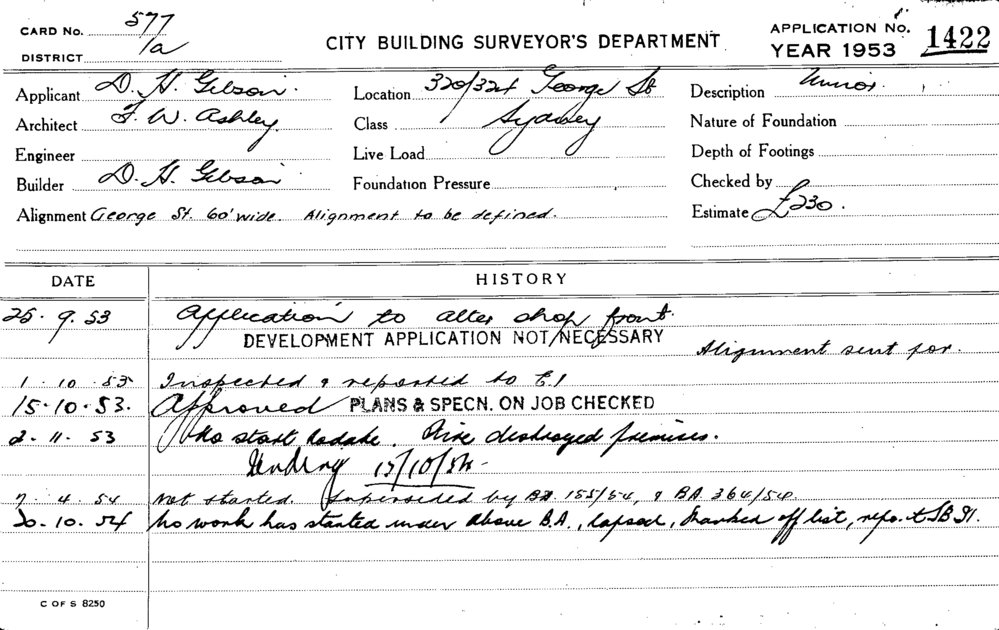 CARD No. 577/a
DISTRICT
CITY BUILDING SURVEYOR'S DEPARTMENT
APPLICATION No. 1422
YEAR 1953
Applicant D. H. Gibson.
Location 320/324 George St
Description Minor.
Architect F. W. Ashley
Class Sydney
Nature of Foundation
Engineer
Live Load
Depth of Footings
Builder D. H. Gibson
Foundation Pressure
Checked by
Alignment George St. 60' wide. Alignment to be defined.
Estimate £230.
DATE HISTORY
25. 9. 53 Application to alter shop front.
DEVELOPMENT APPLICATION NOT NECESSARY
Alignment sent for.
1. 10. 53 Inspected & reported to C.I
15. 10. 53. Approved PLANS & SPECN. ON JOB CHECKED
2. 11. 53 No start to date. Fire destroyed premises.
Pending 15/10/54
7. 4. 54 Not started. Superseded by BA 155/54, & BA 364/54.
20. 10. 54 No work has started under above B.A., lapsed, marked off list, repo.t
C OF S 8250